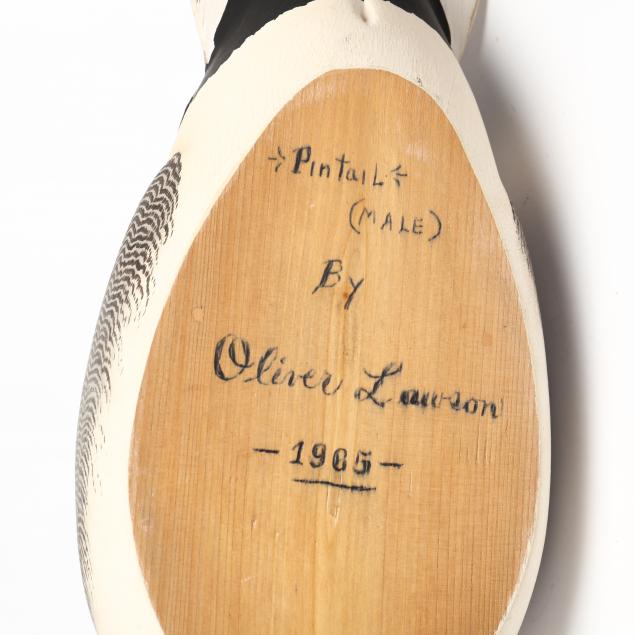 Pintail
(MALE)
By
Oliver Lawson
- 1965 -